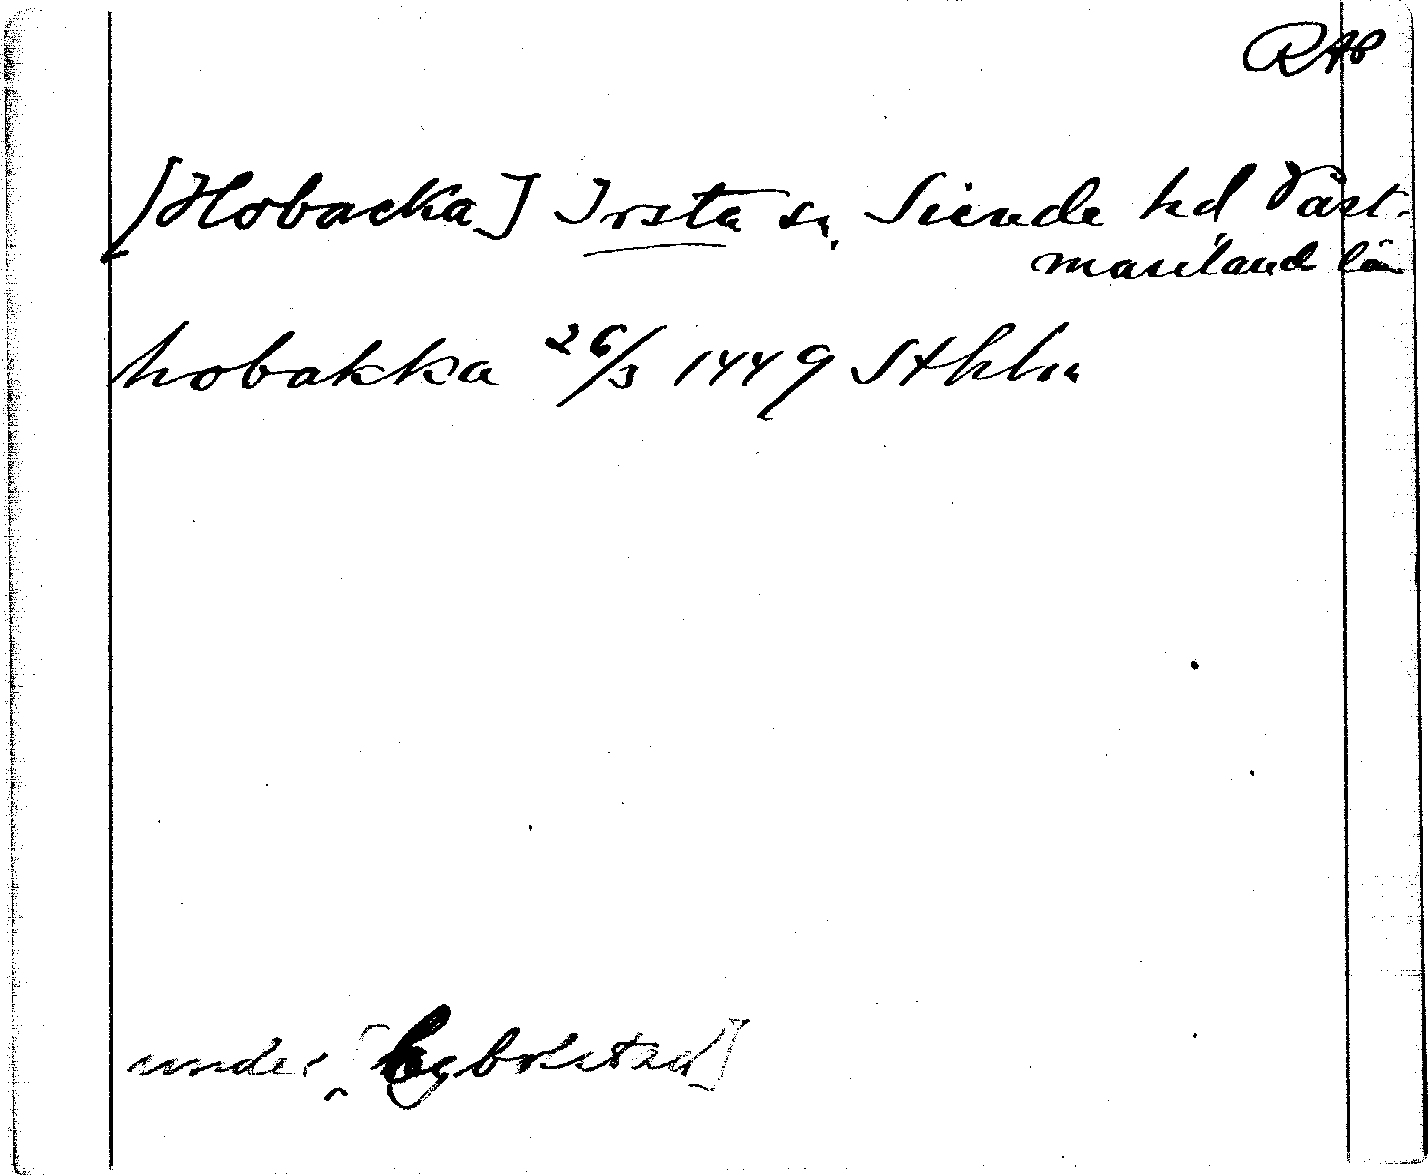 RAP
[Hobacka] Irsta sn, Siende hd Väst-
manland län
hobakka 26/3 1449 Sthlm
under